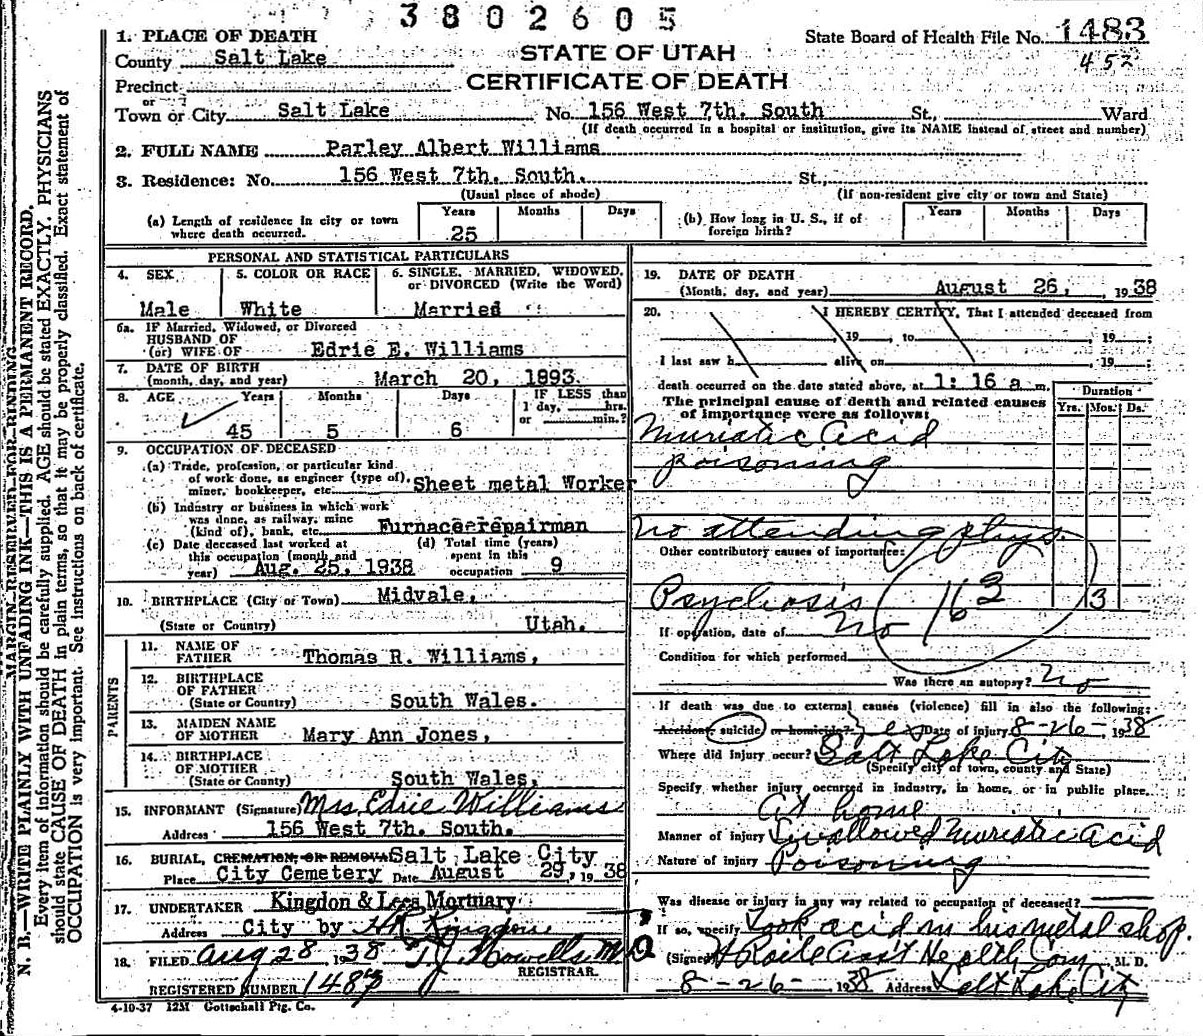 3802605
1. PLACE OF DEATH
State Board of Health File No. 1483
County Salt Lake
STATE OF UTAH
452
CERTIFICATE OF DEATH
Precinct
or
Town or City Salt Lake No. 156 West 7th. South St., Ward
(If death occurred in a hospital or institution, give its NAME instead of street and number)
2. FULL NAME Parley Albert Williams
3. Residence: No. 156 West 7th. South. St.,
(Usual place of abode) (If non-resident give city or town and State)
(a) Length of residence in city or town where death occurred. Years 25 Months Days
(b) How long in U. S., if of foreign birth? Years Months Days
PERSONAL AND STATISTICAL PARTICULARS
4. SEX Male
5. COLOR OR RACE White
6. SINGLE, MARRIED, WIDOWED, or DIVORCED (Write the Word) Married
6a. IF Married, Widowed, or Divorced
HUSBAND OF
(or) WIFE OF Edrie E. Williams
7. DATE OF BIRTH
(month, day, and year) March 20, 1893
8. AGE Years 45 Months 5 Days 6 IF LESS than 1 day, hrs. or min.?
9. OCCUPATION OF DECEASED
(a) Trade, profession, or particular kind
of work done, as engineer (type of),
miner, bookkeeper, etc. Sheet metal Worker
(b) Industry or business in which work
was done, as railway, mine
(kind of), bank, etc. Furnace repairman
(c) Date deceased last worked at
this occupation (month and
year) Aug. 25, 1938
(d) Total time (years)
spent in this
occupation 9
10. BIRTHPLACE (City or Town) Midvale,
(State or Country) Utah.
PARENTS
11. NAME OF
FATHER Thomas R. Williams,
12. BIRTHPLACE
OF FATHER
(State or Country) South Wales.
13. MAIDEN NAME
OF MOTHER Mary Ann Jones,
14. BIRTHPLACE
OF MOTHER
(State or County) South Wales,
15. INFORMANT (Signature) Mrs. Edrie Williams
Address 156 West 7th. South.
16. BURIAL, CREMATION, OR REMOVAL Salt Lake City
Place City Cemetery Date August 29, 1938
17. UNDERTAKER Kingdon & Lees Mortuary
Address City by
18. FILED Aug 28, 1938
REGISTRAR.
REGISTERED NUMBER 1483
4-10-37 12M Gottschall Ptg. Co.
19. DATE OF DEATH
(Month, day, and year) August 26, 1938
20. I HEREBY CERTIFY, That I attended deceased from
, 19 , to , 19 ;
I last saw h alive on , 19 ;
death occurred on the date stated above, at 1:16 a m.
The principal cause of death and related causes
of importance were as follows:
Duration
Yrs. Mos. Ds.
Muriatic Acid
poisoning
No attending phys.
Other contributory causes of importance:
Psychosis 3
163
If operation, date of No
Condition for which performed
Was there an autopsy? No
If death was due to external causes (violence) fill in also the following:
Accident, suicide or homicide? yes Date of injury 8-26-1938
Where did injury occur? Salt Lake City
(Specify city of town, county and State)
Specify whether injury occurred in industry, in home, or in public place.
At home
Manner of injury Swallowed Muriatic Acid
Nature of injury Poisoning
Was disease or injury in any way related to occupation of deceased?
If so, specify Took acid in his metal shop.
(Signed) M. D.
8-26-1938 Address Salt Lake City
MARGIN RESERVED FOR BINDING
N. B.—WRITE PLAINLY WITH UNFADING INK—THIS IS A PERMANENT RECORD.
Every item of information should be carefully supplied. AGE should be stated EXACTLY. PHYSICIANS
should state CAUSE OF DEATH in plain terms, so that it may be properly classified. Exact statement of
OCCUPATION is very important. See instructions on back of certificate.